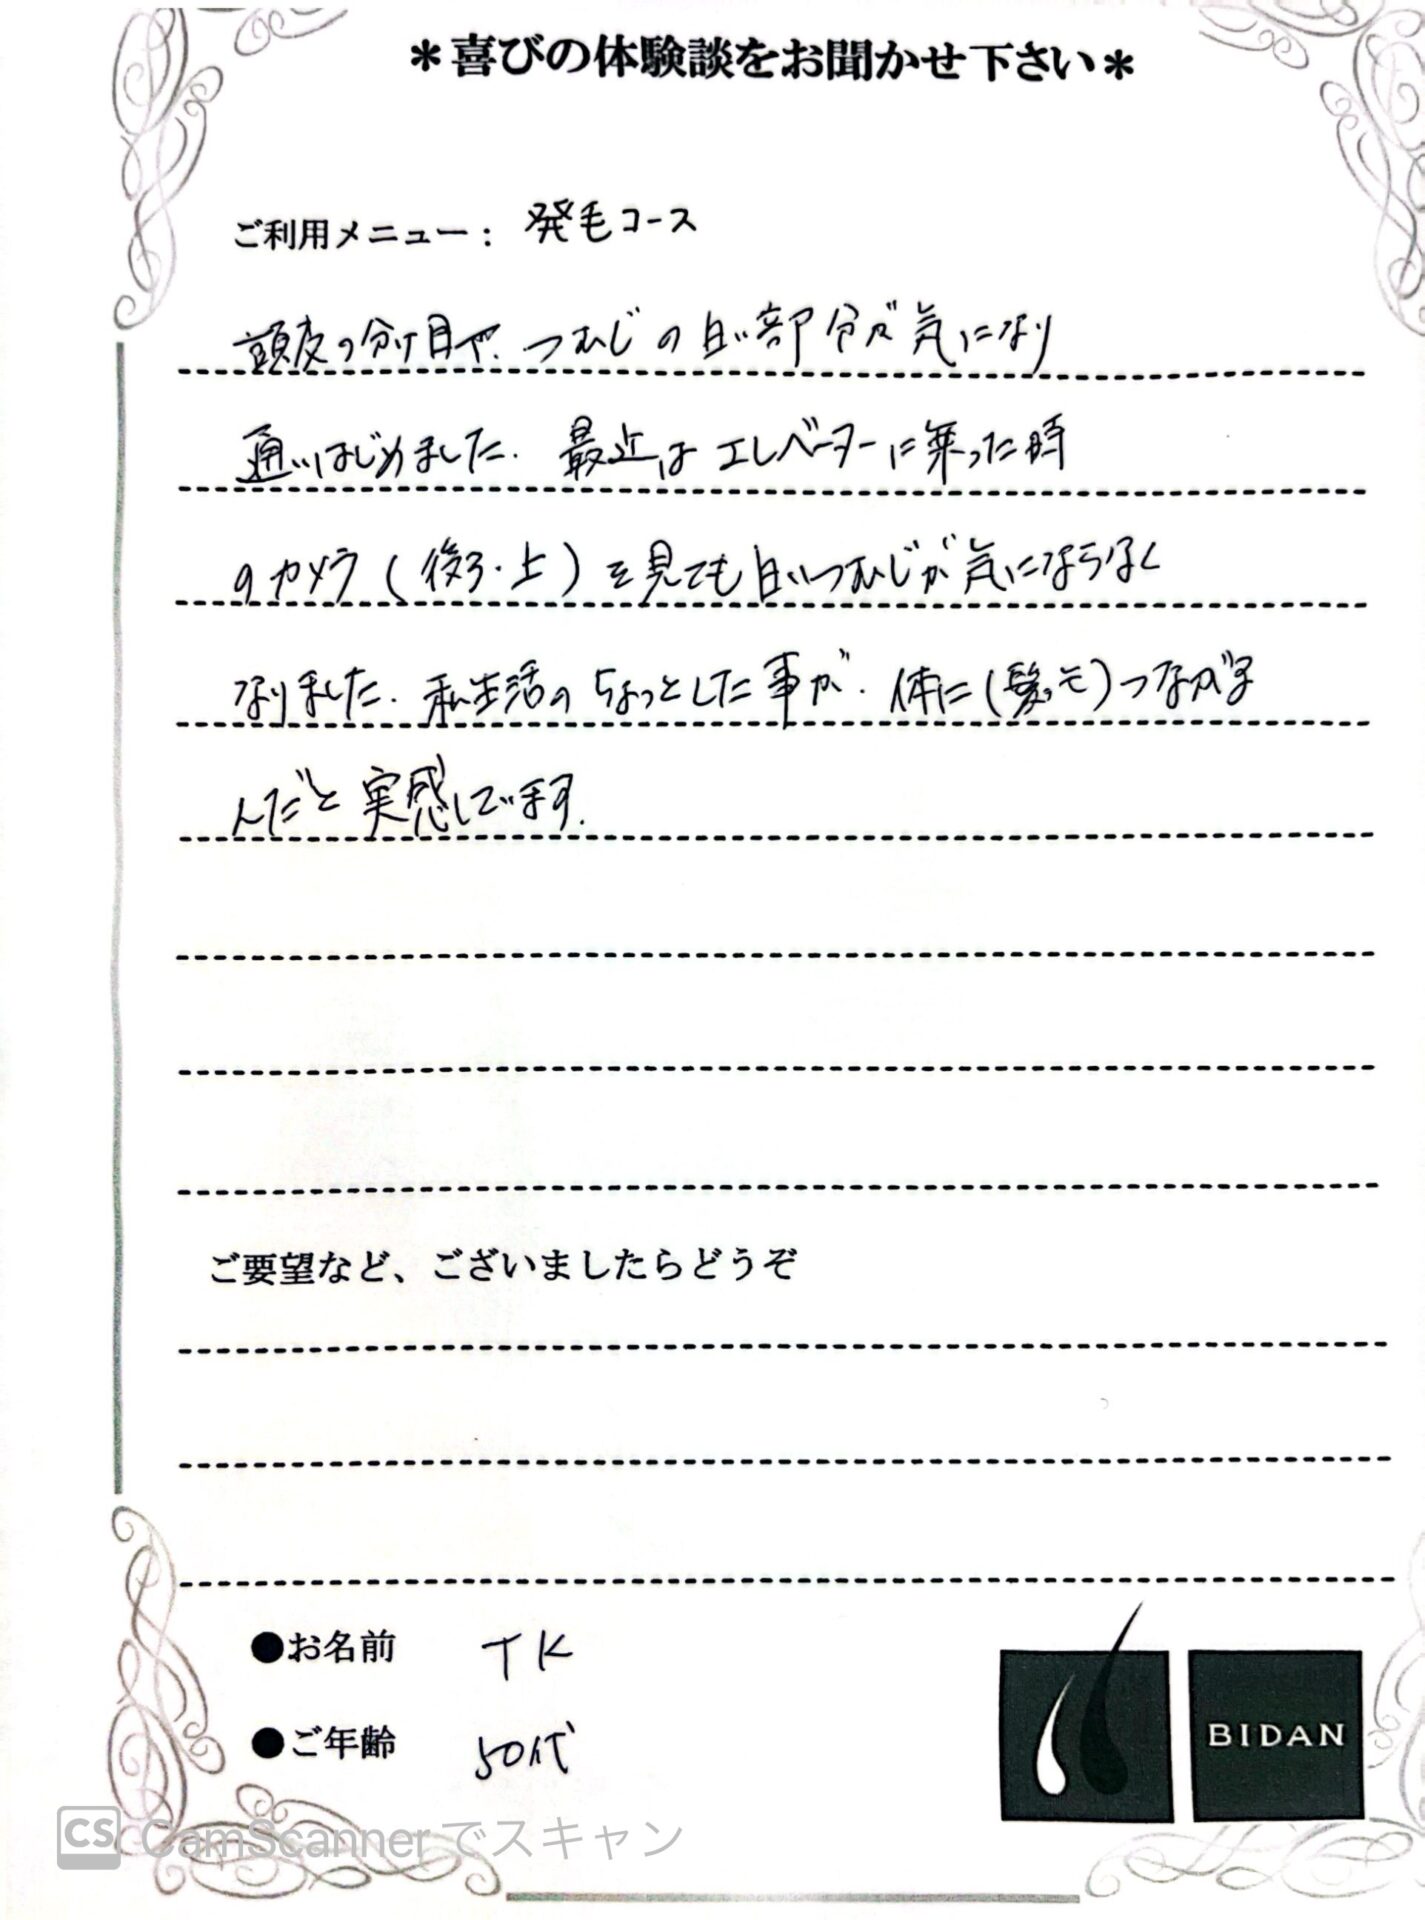 ＊喜びの体験談をお聞かせ下さい＊
ご利用メニュー： 発毛コース
頭皮の分け目や、つむじの白い部分が気になり
通いはじめました。最近はエレベーターに乗った時
のカメラ(後ろ・上)を見ても白いつむじが気にならなく
なりました。私生活のちょっとした事が、体に(髪も)つながる
んだと実感しています。
ご要望など、ございましたらどうぞ
●お名前 TK
●ご年齢 50代
BIDAN
CS CamScannerでスキャン